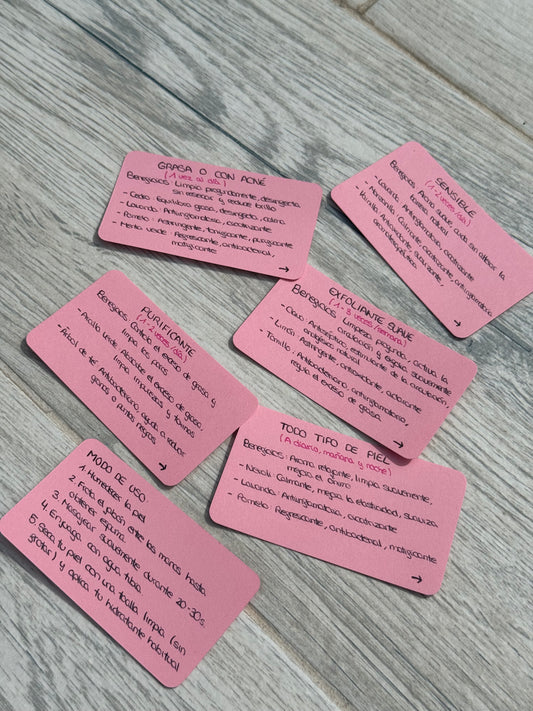 GRASA O CON ACNÉ
(1 vez al día)
Beneficios: Limpia profundamente, desinfecta
sin resecar y reduce brillo
- Cedro: Equilibra grasa, desinfecta, calma
- Lavanda: Antiinflamatoria, cicatrizante
- Pomelo: Astringente, tonificante, purificante
- Menta verde: Refrescante, antibacterial,
matificante
→
SENSIBLE
(1-2 veces/día)
Beneficios: Aroma suave, cuida sin alterar la
barrera natural
- Lavanda: Antiinflamatoria, cicatrizante
- Manzanilla: Calmante, cicatrizante, antiinflamatoria
suavizante,
→
PURIFICANTE
(1-2 veces/día)
Beneficios: Controla el exceso de grasa y
limpia los poros
- Arcilla verde: Absorbe el exceso de grasa,
limpia impurezas y toxinas
- Árbol de té: Antibacteriano, ayuda a reducir
granos o
puntos negros
→
EXFOLIANTE SUAVE
(1-3 veces/semana)
Beneficios: Limpieza profunda, activa la
circulación y exfolia suavemente
- Clavo: Antiséptico, estimulante de la circulación,
analgésico natural
- Limón: Astringente, antioxidante, aclarante
- Tomillo: Antibacteriano, antiinflamatorio,
regula el exceso de grasa.
→
TODO TIPO DE PIEL
(A diario, mañana y noche)
Beneficios: Aroma relajante, limpia suavemente,
mejora el ánimo
- Neroli: Calmante, mejora la elasticidad, suaviza
- Lavanda: Antiinflamatoria, cicatrizante
- Pomelo: Refrescante, antibacterial, matificante
→
MODO DE USO
1. Humedece la piel
2. Frota el jabón entre las manos hasta
obtener espuma
3. Masajear suavemente durante 20-30s.
4. Enjuaga con agua tibia
5. Seca tu piel con una toalla limpia (sin
frotar) y aplica tu hidratante habitual